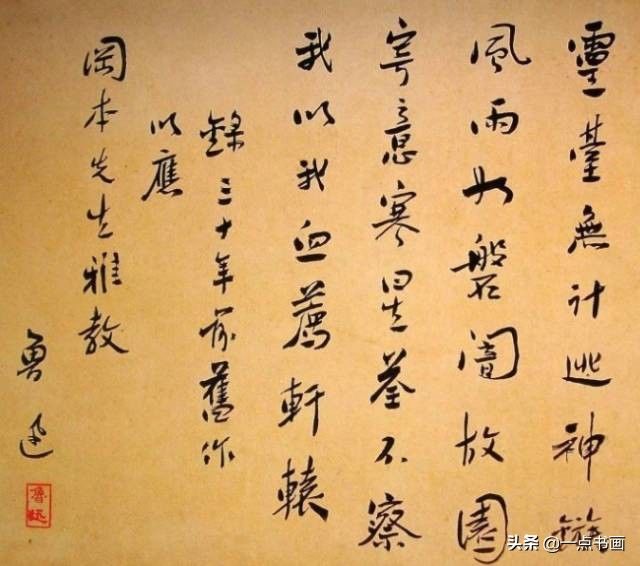 靈臺無計逃神
風雨如磐闇故園
寄意寒星荃不察
我以我血薦軒轅
錄三十年前舊作
以應
岡本先生雅教
魯迅
魯迅
头条 @一点书画